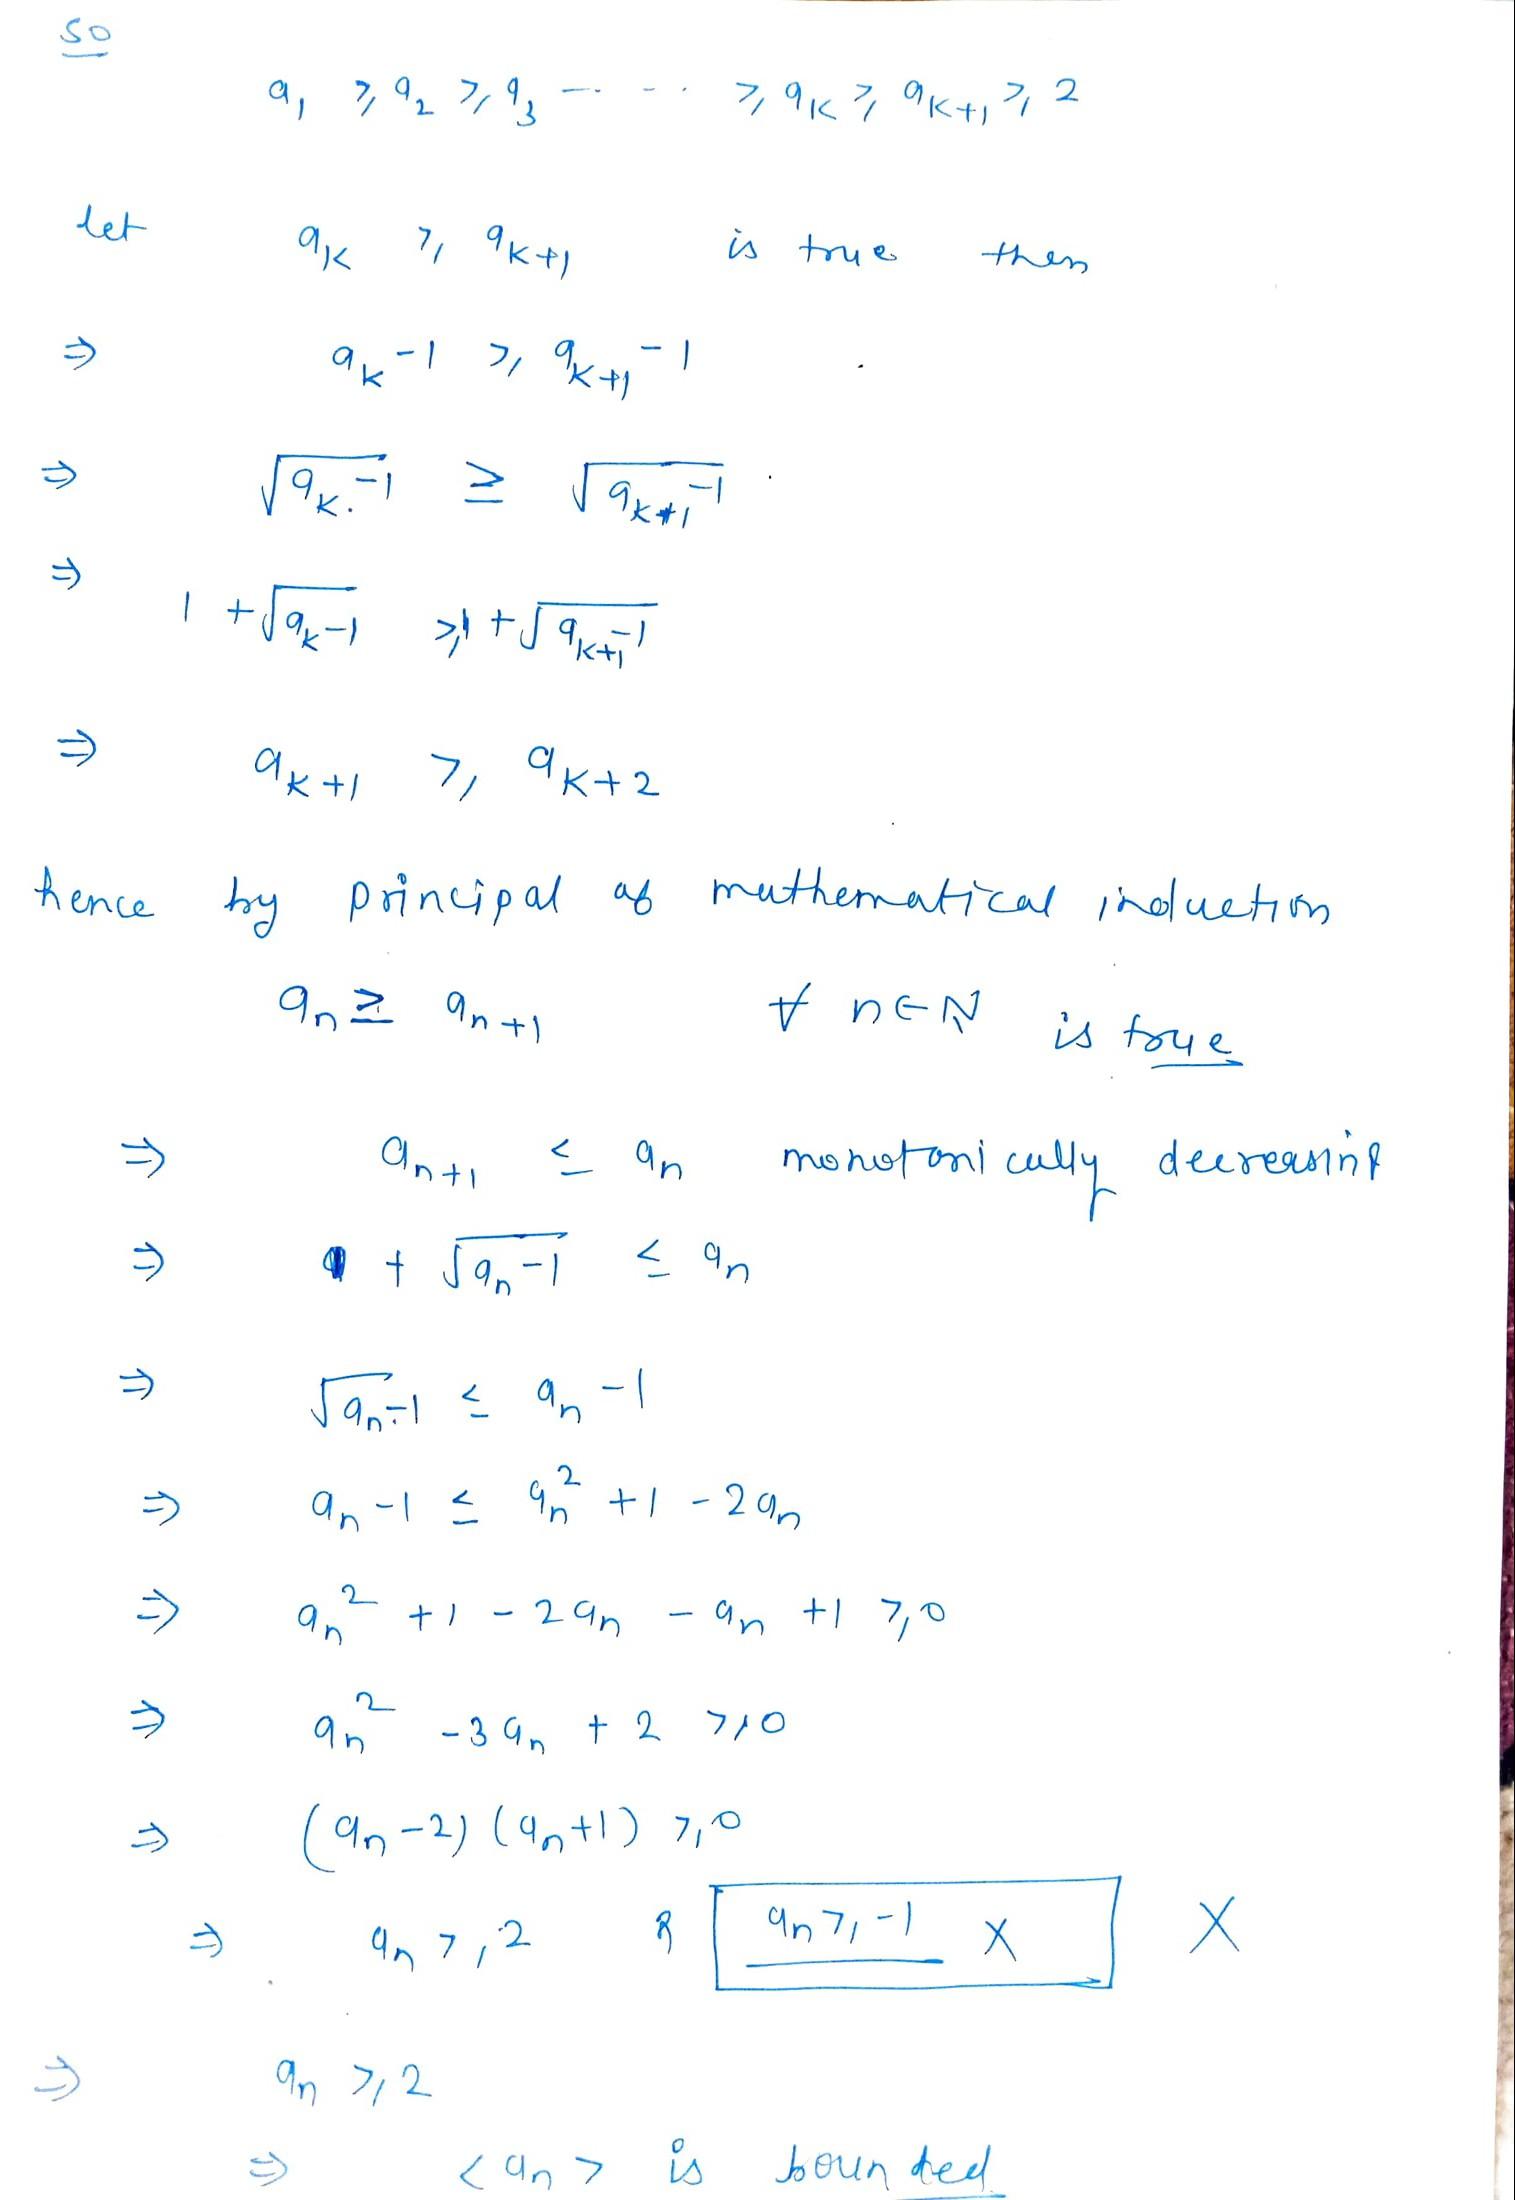 so
a₁ ≥ a₂ ≥ a₃ - - - - ≥ aₖ ≥ aₖ₊₁ ≥ 2
let aₖ ≥ aₖ₊₁ is true then
⇒ aₖ - 1 ≥ aₖ₊₁ - 1
⇒ √(aₖ - 1) ≥ √(aₖ₊₁ - 1)
⇒ 1 + √(aₖ - 1) ≥ 1 + √(aₖ₊₁ - 1)
⇒ aₖ₊₁ ≥ aₖ₊₂
hence by principal of mathematical induction
aₙ ≥ aₙ₊₁ ∀ n∈N is true
⇒ aₙ₊₁ ≤ aₙ monotonically decreasing
⇒ 1 + √(aₙ - 1) ≤ aₙ
⇒ √(aₙ - 1) ≤ aₙ - 1
⇒ aₙ - 1 ≤ aₙ² + 1 - 2aₙ
⇒ aₙ² + 1 - 2aₙ - aₙ + 1 ≥ 0
⇒ aₙ² - 3aₙ + 2 ≥ 0
⇒ (aₙ - 2) (aₙ + 1) ≥ 0
⇒ aₙ ≥ 2 & aₙ ≥ -1 X X
⇒ aₙ ≥ 2
⇒ <aₙ> is bounded